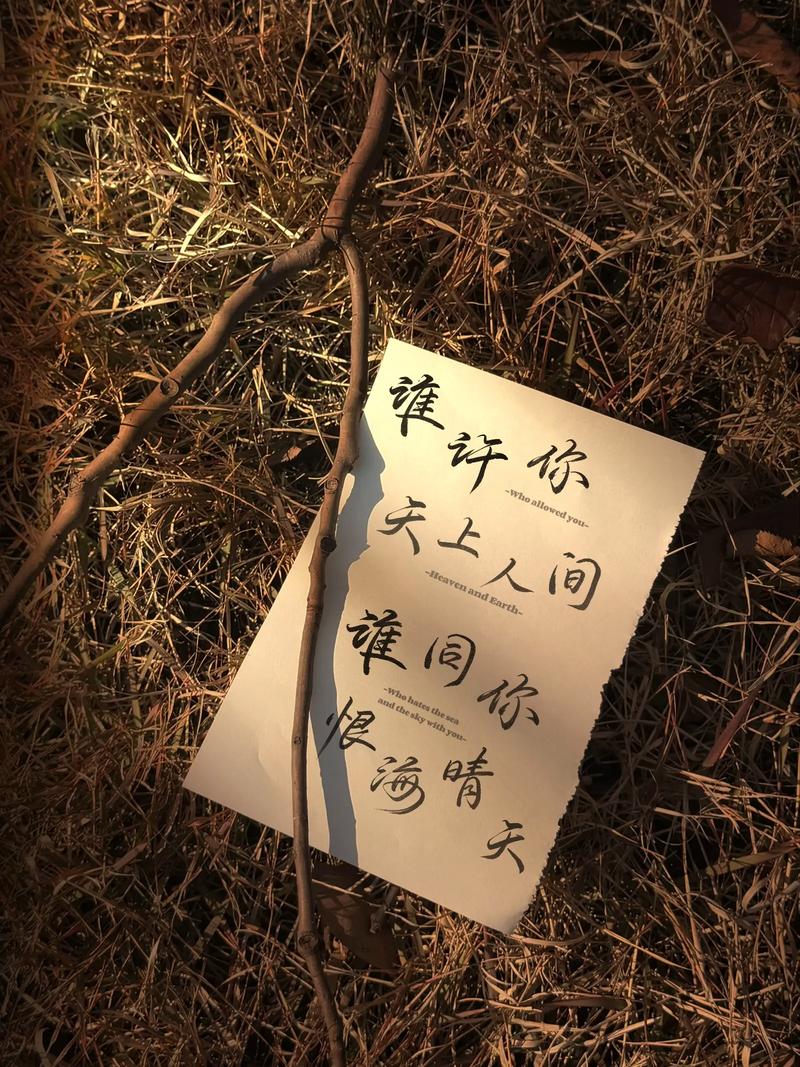 谁许你
~Who allowed you~
天上人间
~Heaven and Earth~
谁同你
~Who hates the sea
and the sky with you~
恨海晴
天